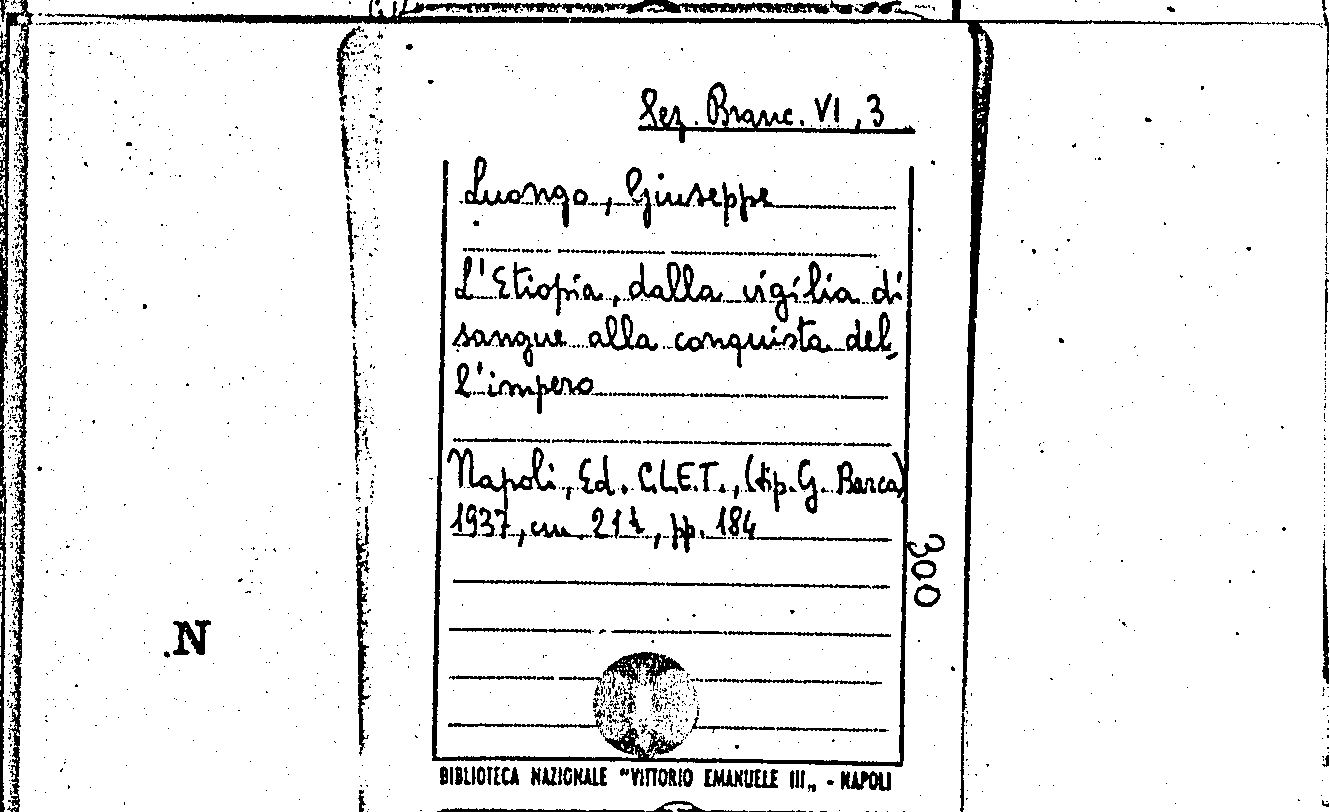 Sez. Branc. VI, 3
Luongo, Giuseppe
L'Etiopia, dalla vigilia di
sangue alla conquista del,
l'impero
Napoli, Ed. C.L.E.T., (tip. G. Barca)
1937, cm. 21, pp. 184
300
N
BIBLIOTECA NAZIONALE "VITTORIO EMANUELE III„ - NAPOLI